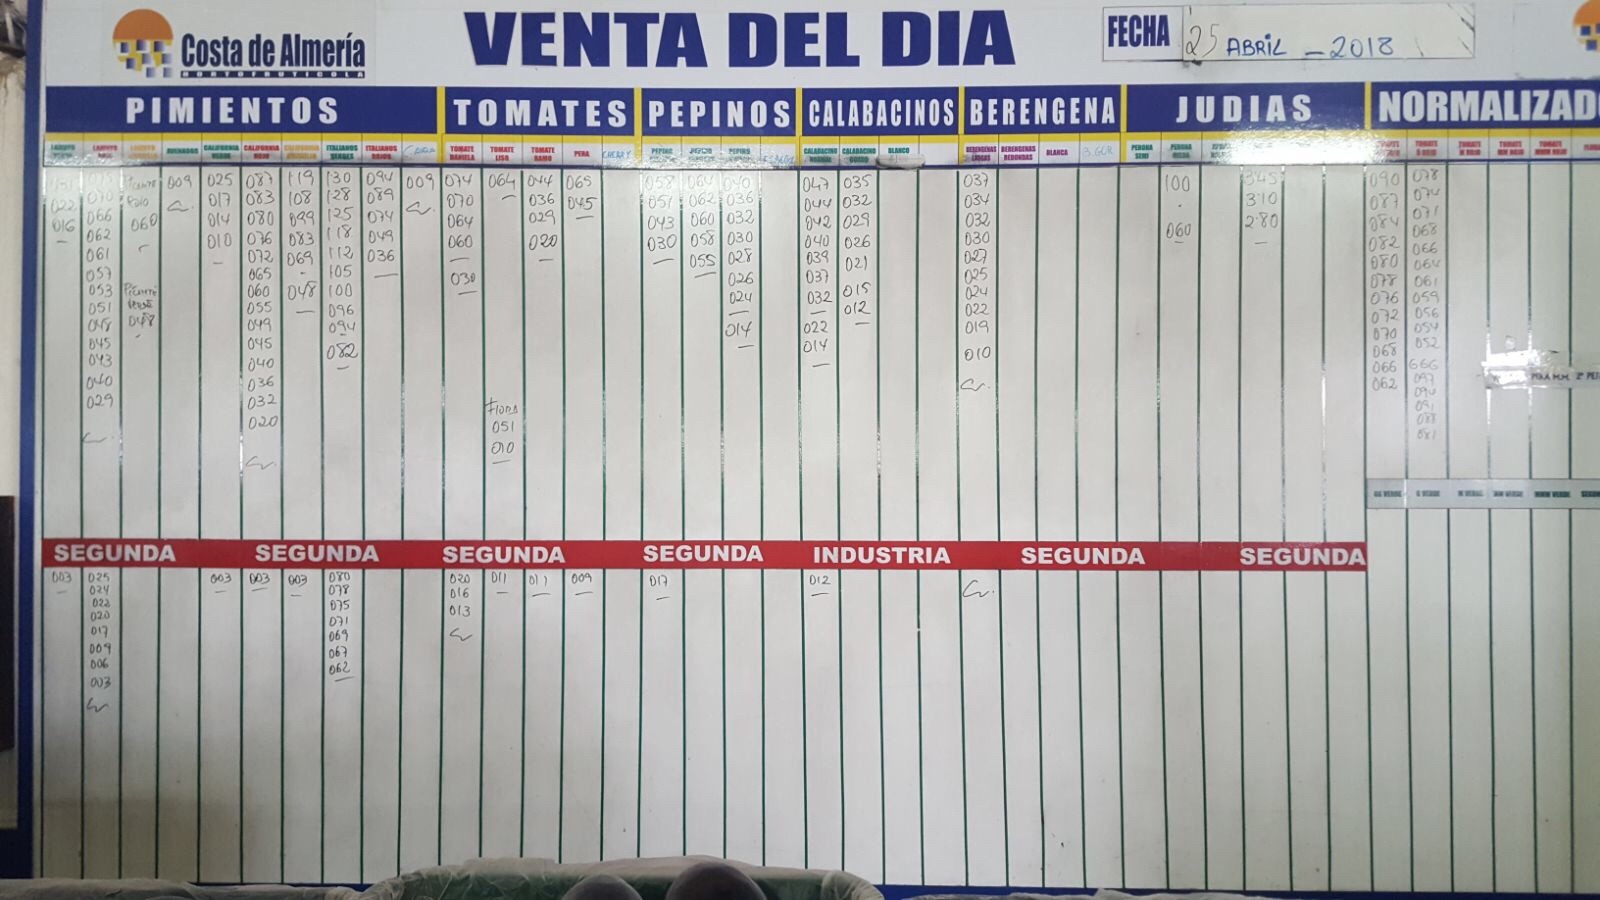 Costa de Almería
HORTOFRUTICOLA
VENTA DEL DIA
FECHA 25 ABRIL - 2018
PIMIENTOS TOMATES PEPINOS CALABACINOS BERENGENA JUDIAS NORMALIZADO
LAMUYO ROJO
CALIFORNIA VERDE
CALIFORNIA ROJO
ITALIANOS VERDES
ITALIANOS ROJOS
TOMATE DANIELA
TOMATE LISO
TOMATE RAMO
PERA
CHERRY
CALABACINO NORMAL
CALABACINO GORDO
BLANCO
BERENGENAS LARGAS
BERENGENAS REDONDAS
BLANCA
B.GOR
PERONA SEMI
PERONA
022
016
070
066
062
061
057
053
051
048
045
043
040
029
PICANTE
ROJO
060
PICANTE
048
009
025
017
014
010
087
083
080
076
072
065
060
055
049
045
040
036
032
020
119
108
099
083
069
048
130
128
125
118
112
105
100
096
094
082
094
089
074
049
036
009
074
070
064
060
030
064
FLORA
051
010
044
036
029
020
065
045
058
051
043
030
064
062
060
058
055
040
036
032
030
028
026
024
014
047
044
042
040
039
037
032
022
014
035
032
029
026
021
015
012
037
034
032
030
027
025
024
022
019
010
100
060
345
310
2'80
090
087
084
082
080
078
076
072
070
068
066
062
078
074
071
068
066
064
061
059
056
054
052
666
097
094
091
088
081
GG VERDE G VERDE M VERDE MM VERDE MMM VERDE
SEGUNDA SEGUNDA SEGUNDA SEGUNDA INDUSTRIA SEGUNDA SEGUNDA
003
025
024
022
020
017
009
006
003
003
003
003
080
078
075
071
069
067
062
020
016
013
011
011
009
017
012